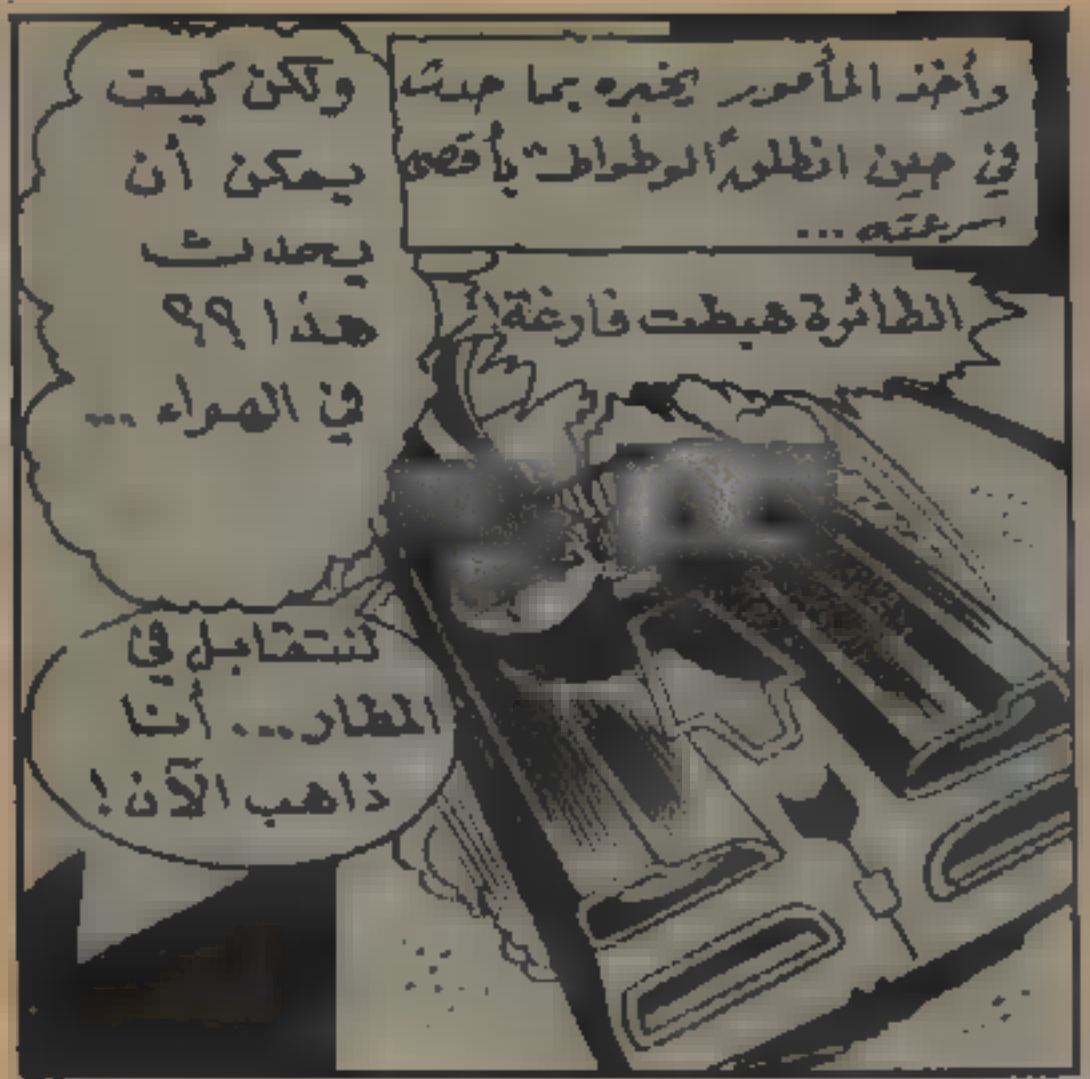 وأخذ المأمور يخبره بما حدث
في حين انطلق "الوطواط" بأقصى
سرعته ...
الطائرة هبطت فارغة!
ولكن كيف
يمكن أن
يحدث
هذا ؟؟
في الهواء ...
لنتقابل في
المطار... أنا
ذاهب الآن!